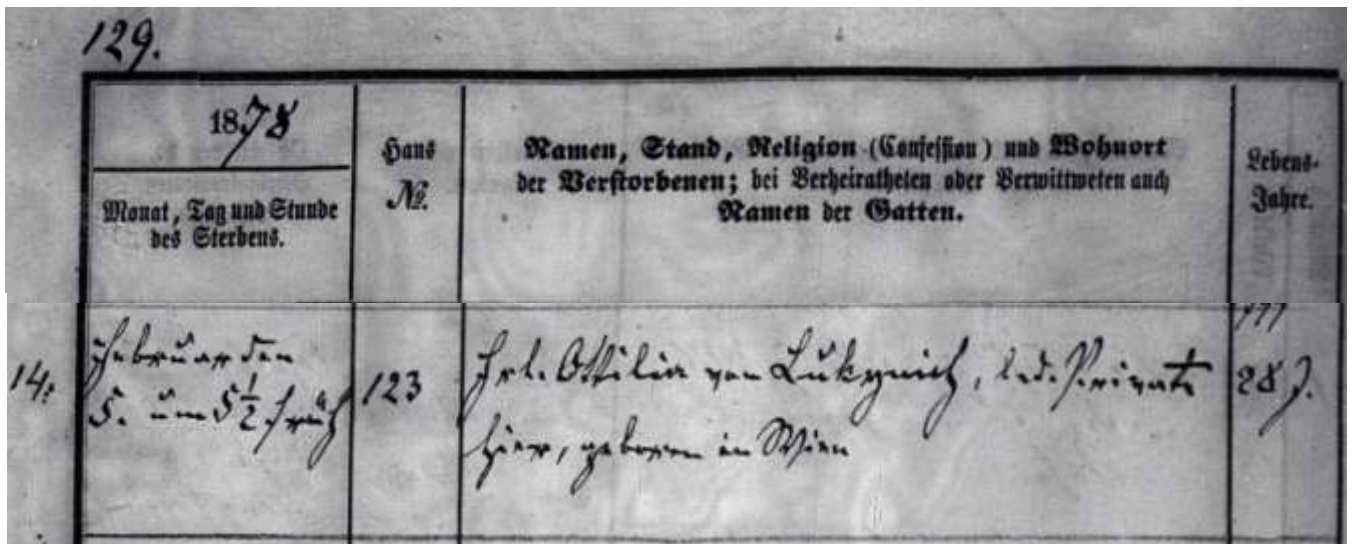 129.
1878
Monat, Tag und Stunde
des Sterbens.
Haus
No.
Namen, Stand, Religion (Confession) und Wohnort
der Verstorbenen; bei Verheiratheten oder Verwittweten auch
Namen der Gatten.
Lebens-
Jahre.
14.
Februar den
5. um 5 1/2 früh
123
Frl. Ottilia von, led. Private
hier, geboren in Wien
28 J.